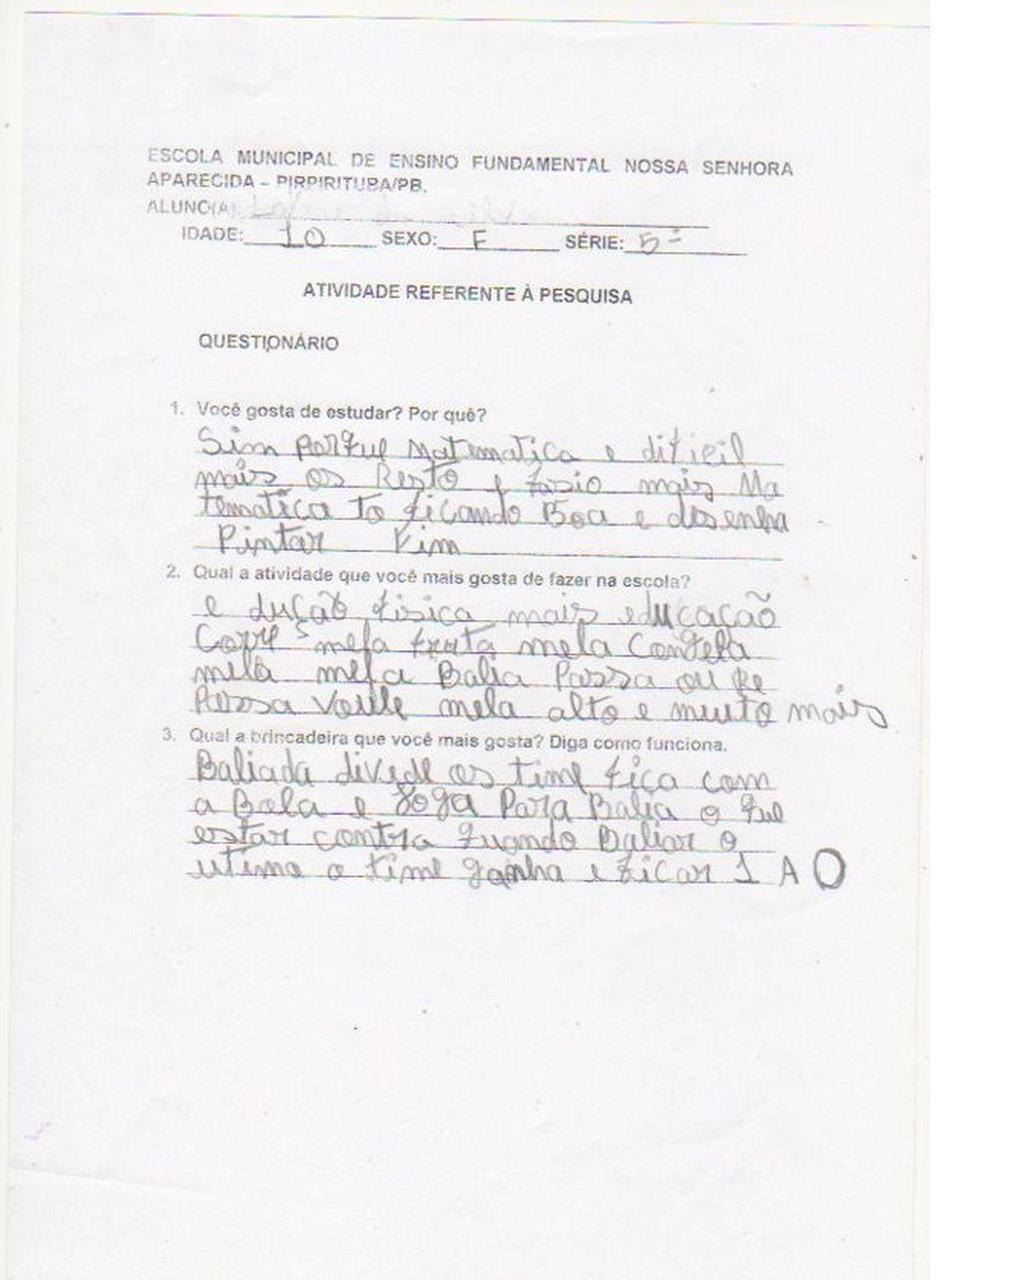 ESCOLA MUNICIPAL DE ENSINO FUNDAMENTAL NOSSA SENHORA
APARECIDA – PIRPIRITUBA/PB.
ALUNO(A)
IDADE: 10 SEXO: F SÉRIE: 5ª
ATIVIDADE REFERENTE À PESQUISA
QUESTIONÁRIO
1. Você gosta de estudar? Por quê?
Sim porque matematica e dificil
mais os Resto e fasio mais Ma
tematica to ficando Boa e desenha
Pintar Fim
2. Qual a atividade que você mais gosta de fazer na escola?
e dução fisica mais educação
Corre mela fruta mela Congela
mela mela Balia Passa ou Re
Passa Voule mela alto e muito mais
3. Qual a brincadeira que você mais gosta? Diga como funciona.
Baliada divede os time fica com
a Bola e Joga Para Balia o que
estar contra quando Baliar o
utimo o time ganha e ficar 1 A 0